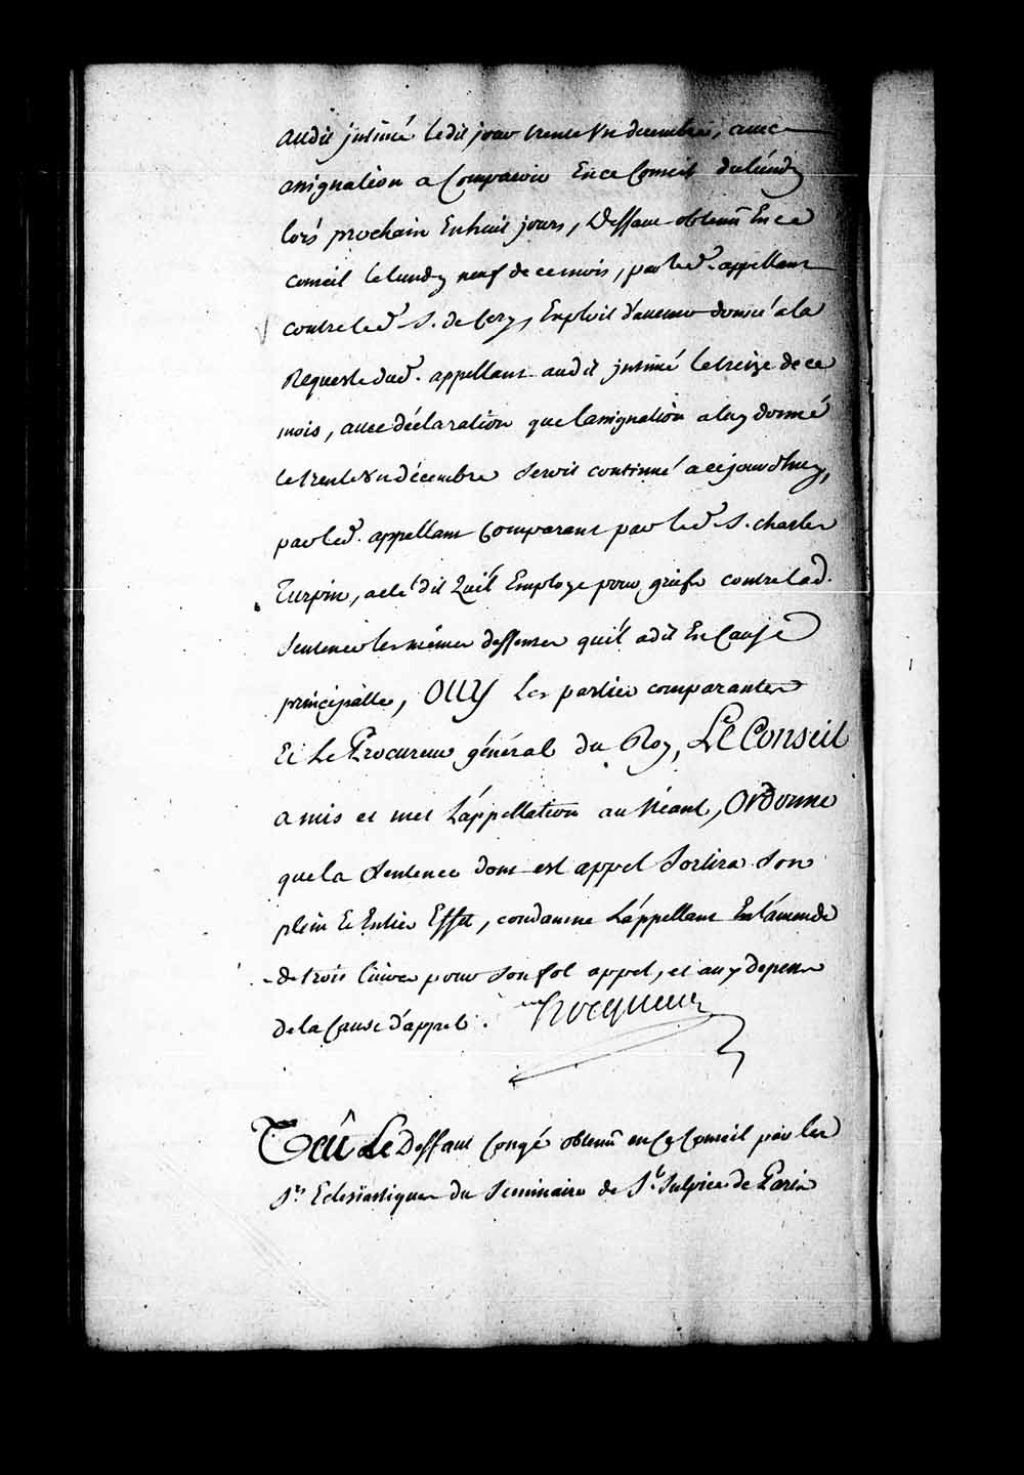 audit intimé ledit jour trente un decembre, avec
assignation a Comparoir En ce Conseil du lundy
lors prochain En huit jours, Deffaut obtenû En ce
conseil le lundy neuf de ce mois, par led. appellant
contre led. S. de Lery, Exploit d'avenir donné a la
Requeste dud. appellant audit intimé le treize de ce
mois, avec déclaration que l'assignation a luy donné
le trente un décembre seroit continué a cejourdhuy,
par led. appellant Comparant par led. S. charles
Turpin, a été dit quil Employe pour griefs contre lad.
sentence les mémes deffenses qu'il a dit En Cause
principalle, OUY Les parties comparantes
Et Le Procureur général du Roy, LE Conseil
a mis et met L'appellation au Néant, Ordonne
que la Sentence dont est appel Sortira Son
plein Et Entier Effet, condamne L'appellant En l'amende
de trois livres pour son fol appel, et aux depens
de la Cause d'appel. hocquart
Veû Le Deffaut Congé obtenû en ce Conseil par les
Srs. Eclesiastiques du Seminaire de St. Sulpice de Paris